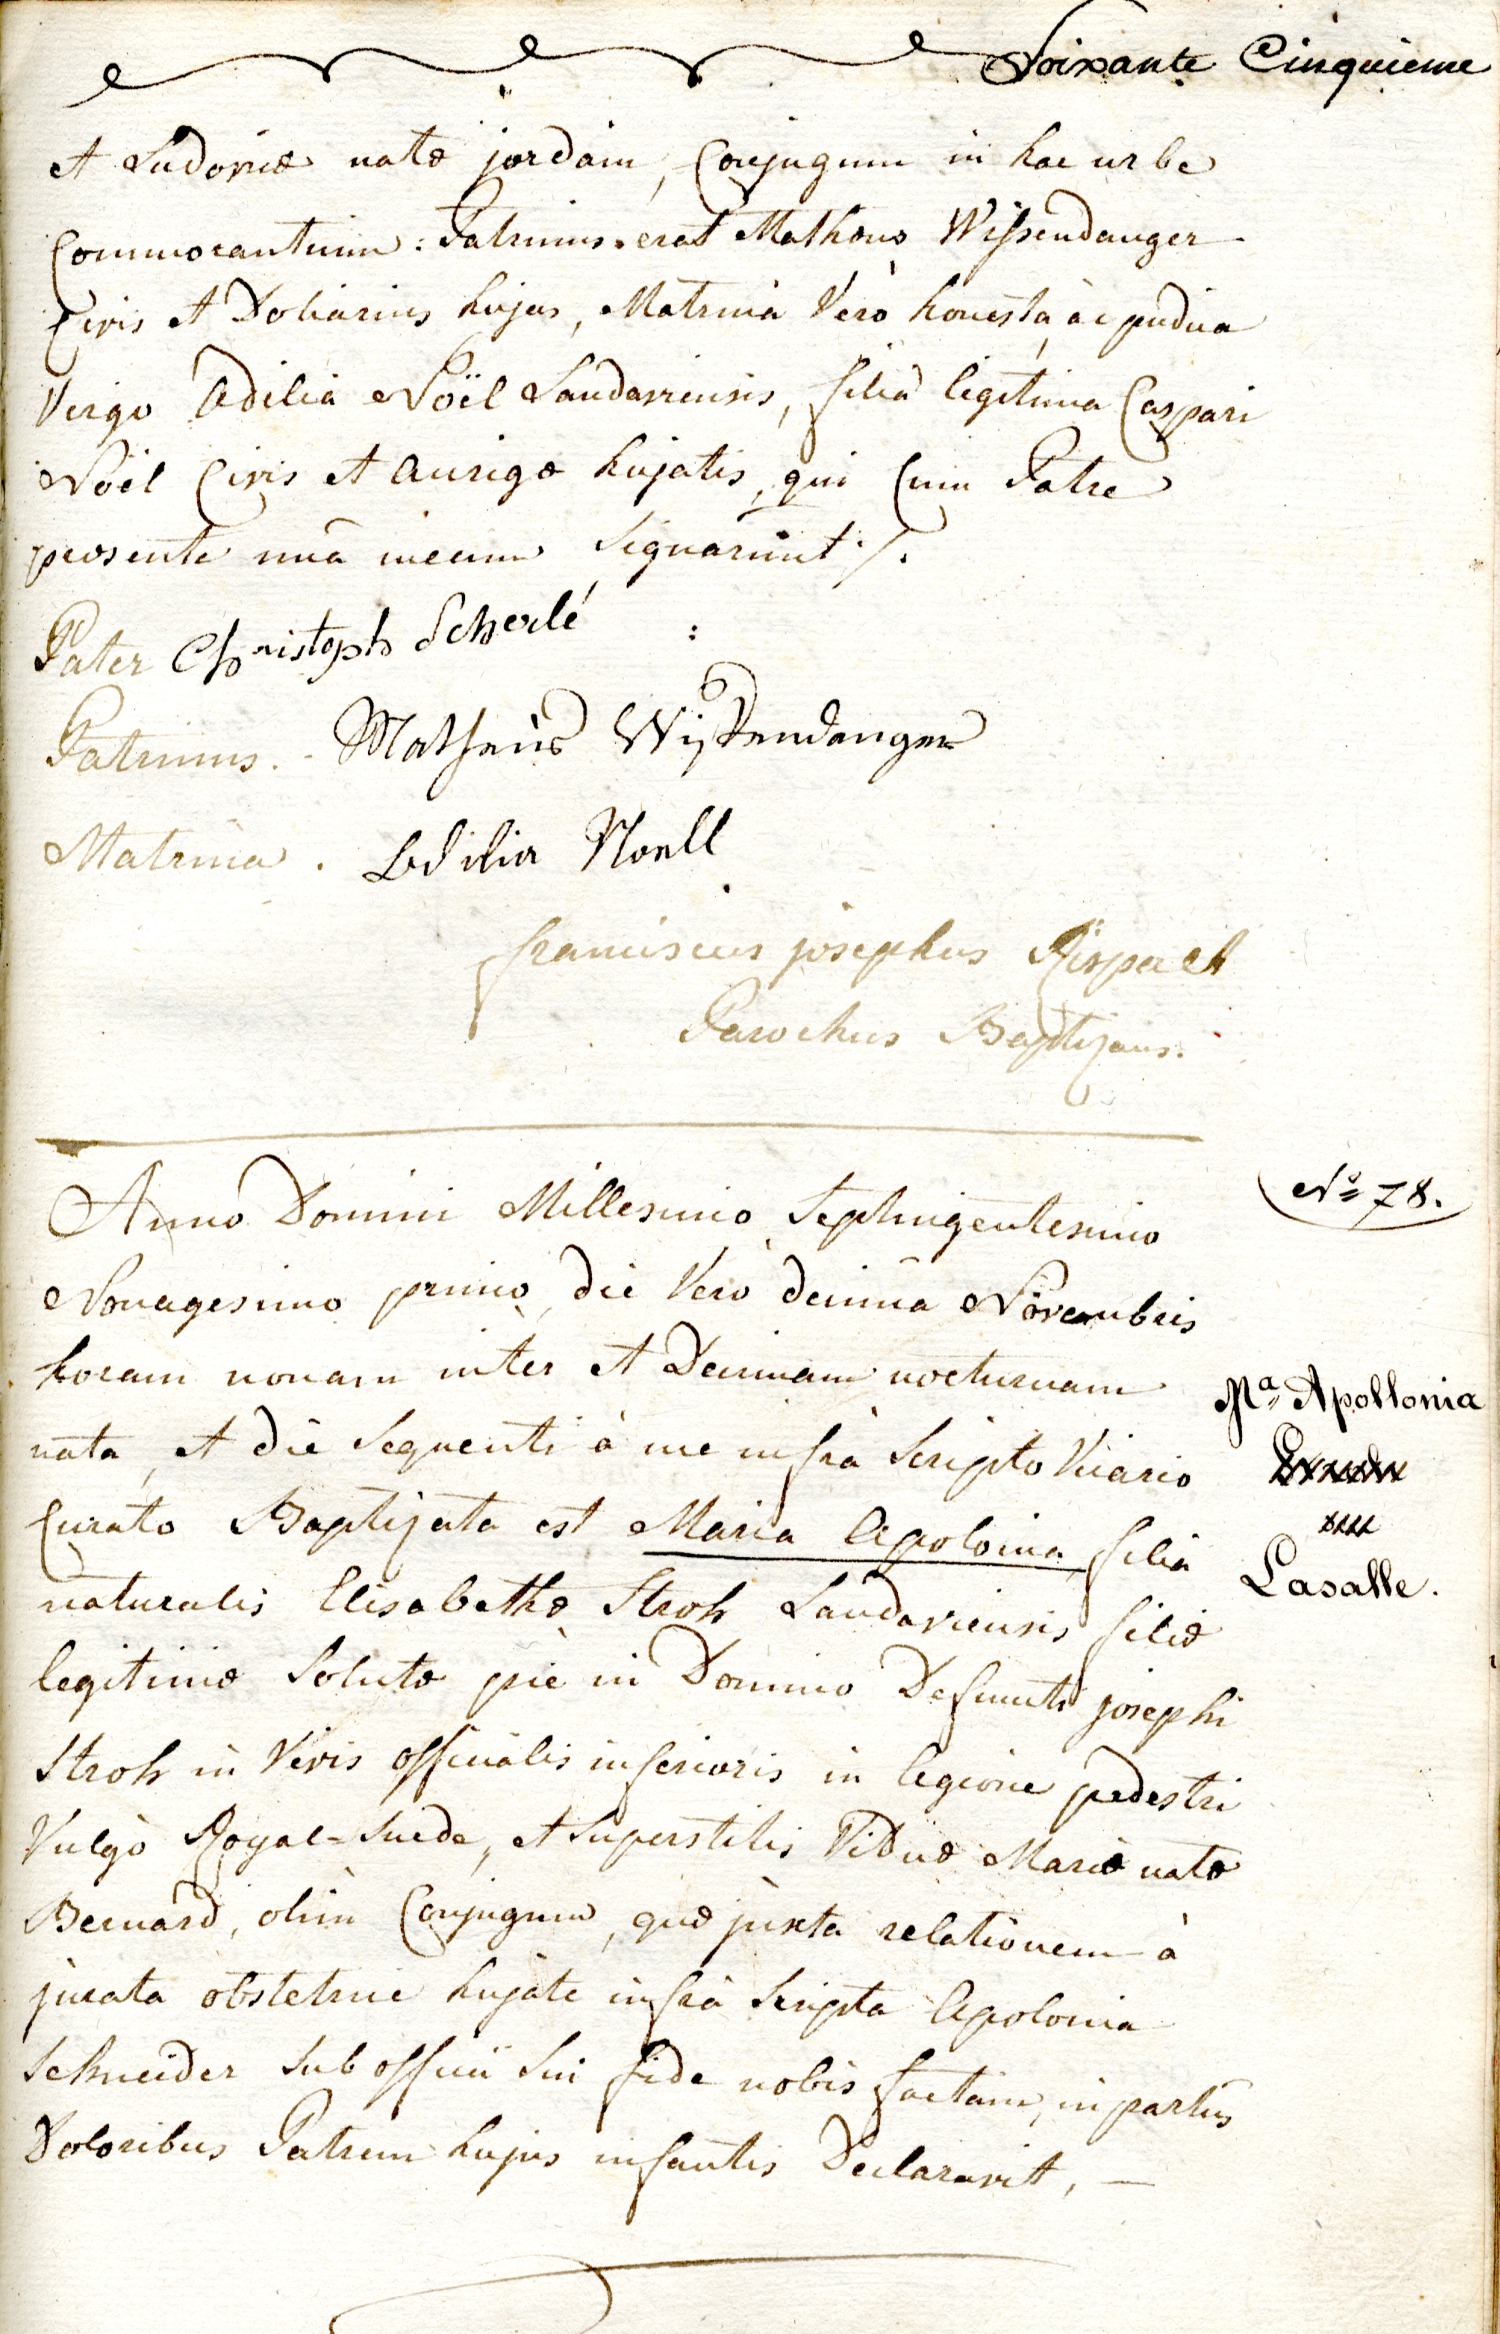 Soixante Cinquieme
et Ludovicæ natæ jordain, Conjugum in hac urbe
Commorantium: Patrinus erat Mathæus Wissendanger
Civis et Doliarius hujas, Matrina Verò honesta àc pudica
Virgo Odilia Noël Landaviensis, filia legitima Caspari
Noël Civis et aurigæ hujatis, qui Cum Patre
præsente unà mecum Signarunt ./.
Pater Christoph Scherlé :
Patrinus. Matheus Wistendanger
Matrina. Odilia Noell
franciscus josephus
Parochus Baptizans.
Nº 78.
Anno Domini Millesimo Septingentesimo
Nonagesimo primo, die Vero decima Novembris
horam nonam inter et Decimam nocturnam
Mª Apollonia
nata, et die Sequenti à me infrà Scripto Vicario
Curato Baptizata est Maria Apolonia filia
Lasalle.
naturalis Elisabethæ Stroh Landaviensis filiæ
legitimæ Solutæ piè in Domino Defuncti josephi
Stroh in Vivis officialis inferioris in legione pedestri
Vulgò Royal-Suede, et Superstitis Viduæ Mariæ natæ
Bernard, olim Conjugum, quæ juxta relationem à
jurata obstetrice hujate infrà Scripta Apolonia
Schneider Sub officii Sui fide nobis factam, in partûs
Doloribus Patrem hujus infantis Declaravit, —